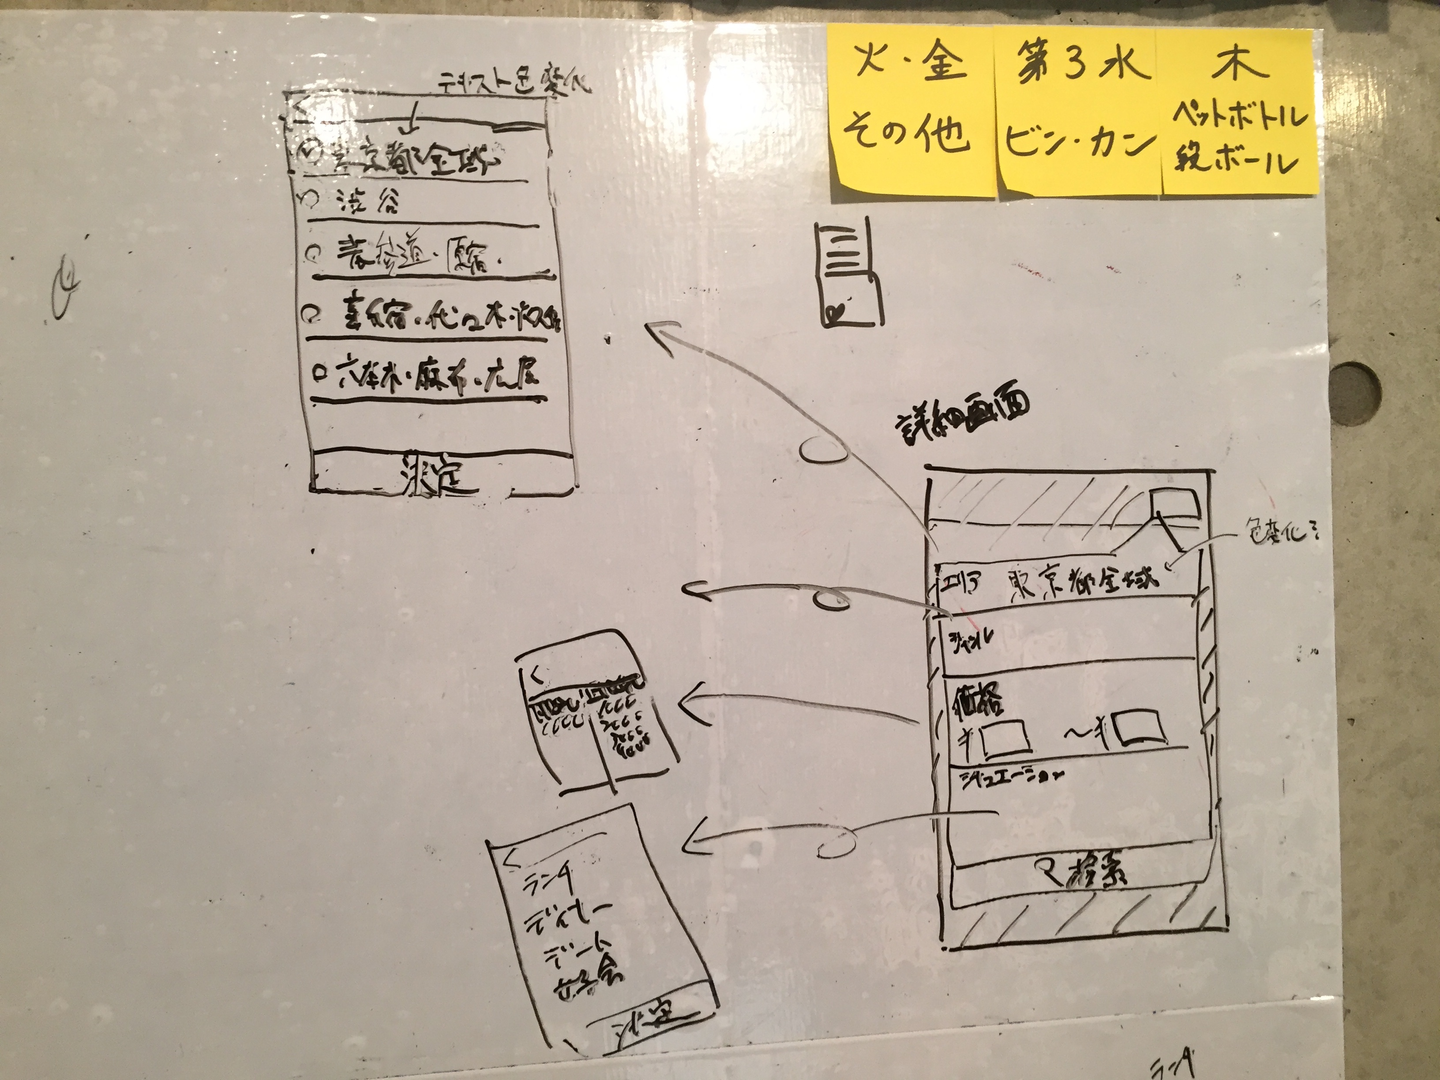 火・金
その他
第3水
ビン・カン
木
ペットボトル
段ボール
テキスト色変化
東京都全域
渋谷
表参道・原宿
新宿・代々木
六本木・麻布・広尾
決定
詳細画面
色変化
エリア 東京都全域
ジャンル
価格
¥ 〜¥
シチュエーション
検索
ランチ
ディナー
デート
女子会
決定
ランチ